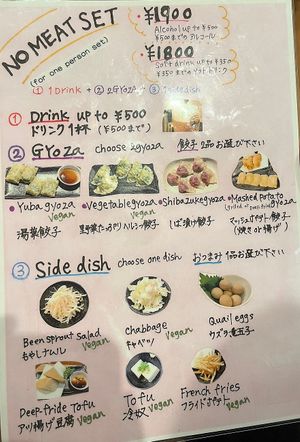 NO MEAT SET
(for one person set)
¥1900
Alcohol up to ¥500
¥500までのアルコール
¥1800
Soft drink up to ¥350
¥350までのソフトドリンク
① 1 Drink + ② 2 GYOZA + ③ 1 side dish
① Drink up to ¥500
ドリンク1杯 (¥500まで)
② GYOZA choose 2gyoza 餃子 2品お選び下さい
• Yuba gyoza
Vegan
湯葉餃子
• Vegetable gyoza
Vegan
野菜たっぷりヘルシー餃子
• Shibazuke gyoza
しば漬け餃子
• Mashed potato
gyoza
マッシュポテト餃子
(焼き or 揚げ)
③ Side dish choose one dish おつまみ 1品お選び下さい
Been sprout salad
もやしナムル Vegan
Chabbage
キャベツ Vegan
Quail eggs
ウズラ煮玉子
Deep-fride Tofu
アツ揚げ豆腐 Vegan
Tofu
冷奴 Vegan
French fries
フライドポテト Vegan